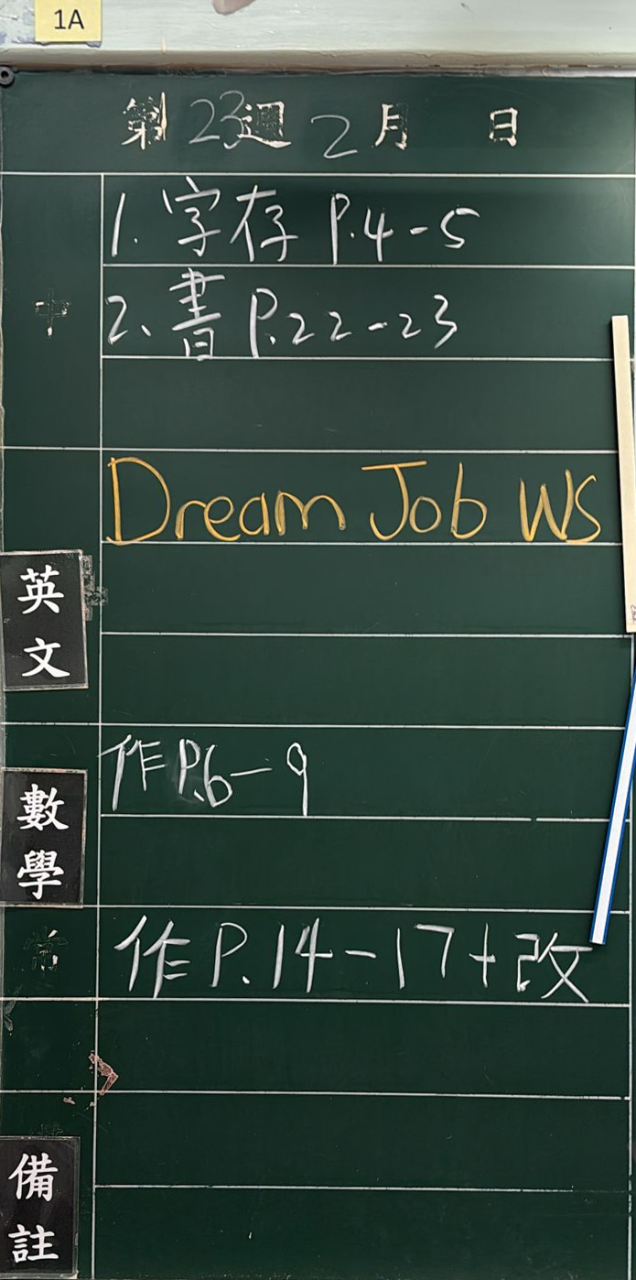 1A
第23週2月 日
中
1. 字存 P.4-5
2、書 P.22-23
英文
Dream Job WS
數學
作 P.6-9
常
作 P.14-17+改
備註